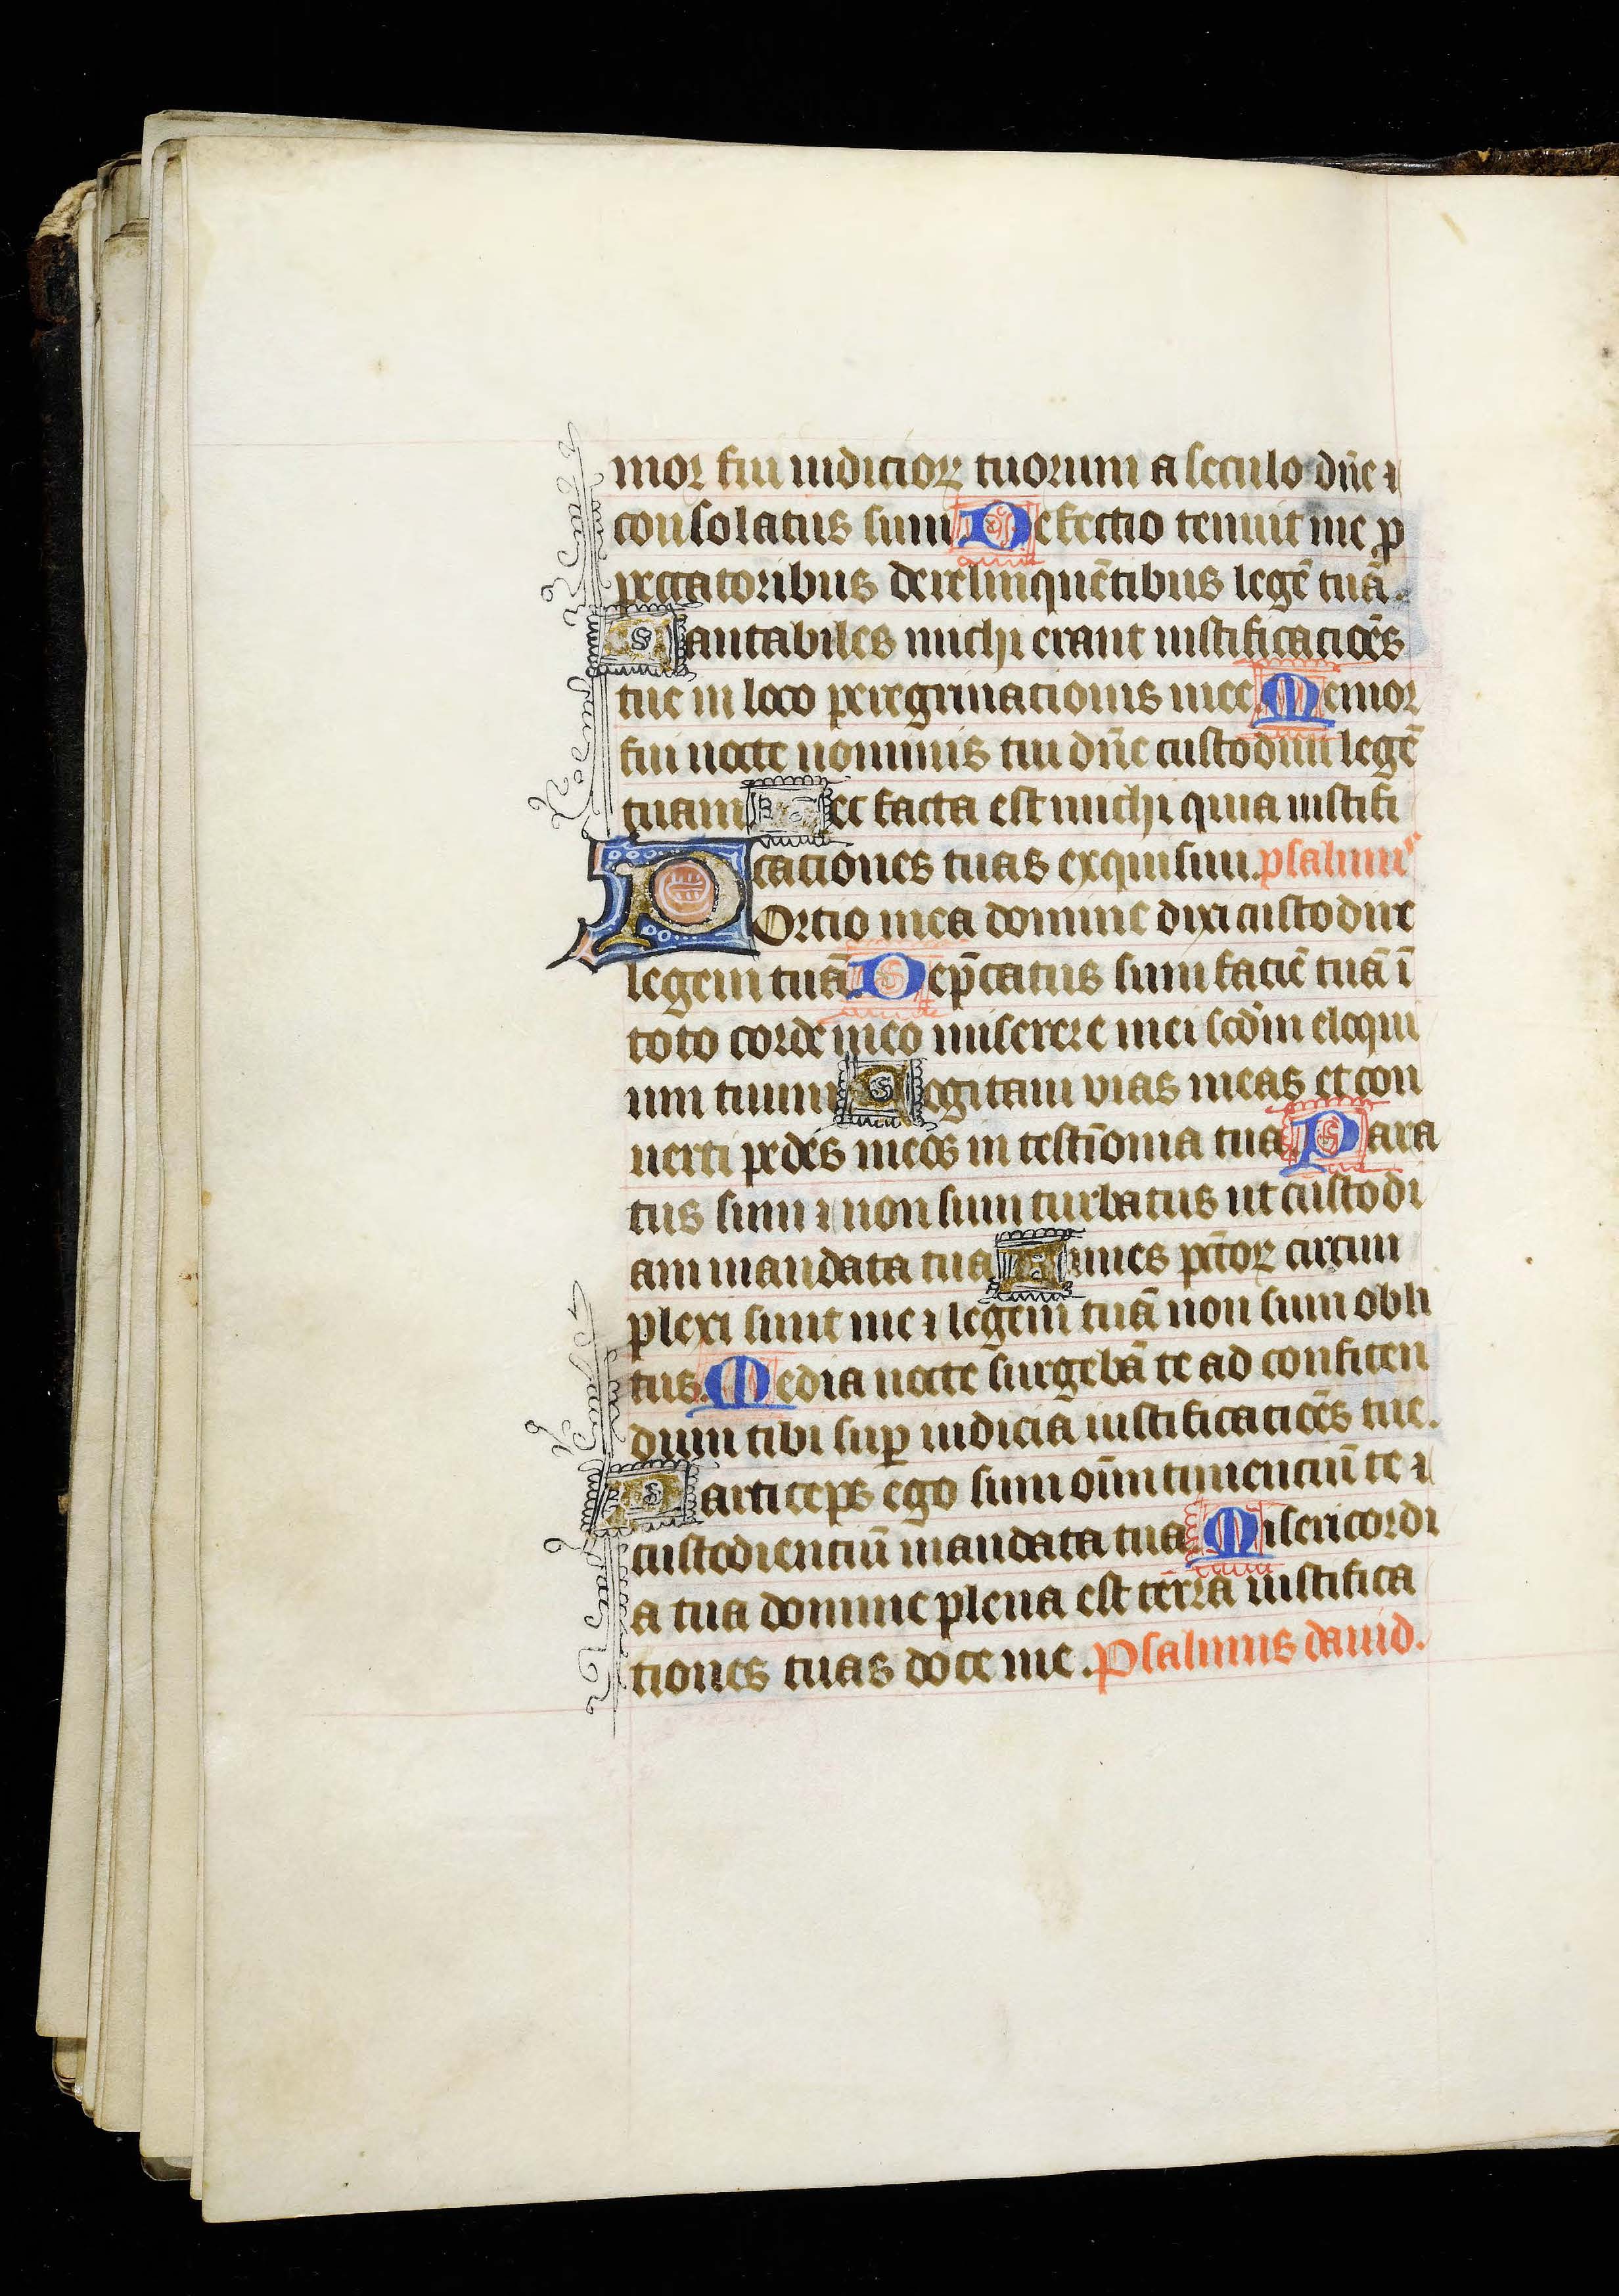 mor fui iudicioꝝ tuorum a seculo dñe ⁊
consolatus sum. Defectio tenuit me ꝓ
peccatoribus derelinquẽtibus legẽ tuã.
Cantabiles michi erant iustificaciões
tue in loco peregrinacionis mee. Memor
fui nocte nominis tui dñe custodiui legẽ
tuam. Hec facta est michi quia iustifi
caciones tuas exquisiui. psalmꝰ
POrtio mea domine dixi custodire
legem tuã. Dep̃catus sum faciẽ tuã ĩ
toto corde meo miserere mei scďm eloqui
um tuum. Cogitaui vias meas et con
uerti pedes meos in testĩonia tua. Para
tus sum ⁊ non sum turbatus ut custodi
am mandata tua. Funes pc̃toꝝ circum
plexi sunt me ⁊ legem tuã non sum obli
tus. Media nocte surgebã te ad confiten
dum tibi suꝑ iudicia iustificaciões tue.
Particeps ego sum oĩm timenciũ te ⁊
custodienciũ mandata tua. Misericordi
a tua domine plena est terra iustifica
tiones tuas doce me. Psalmus dauid.